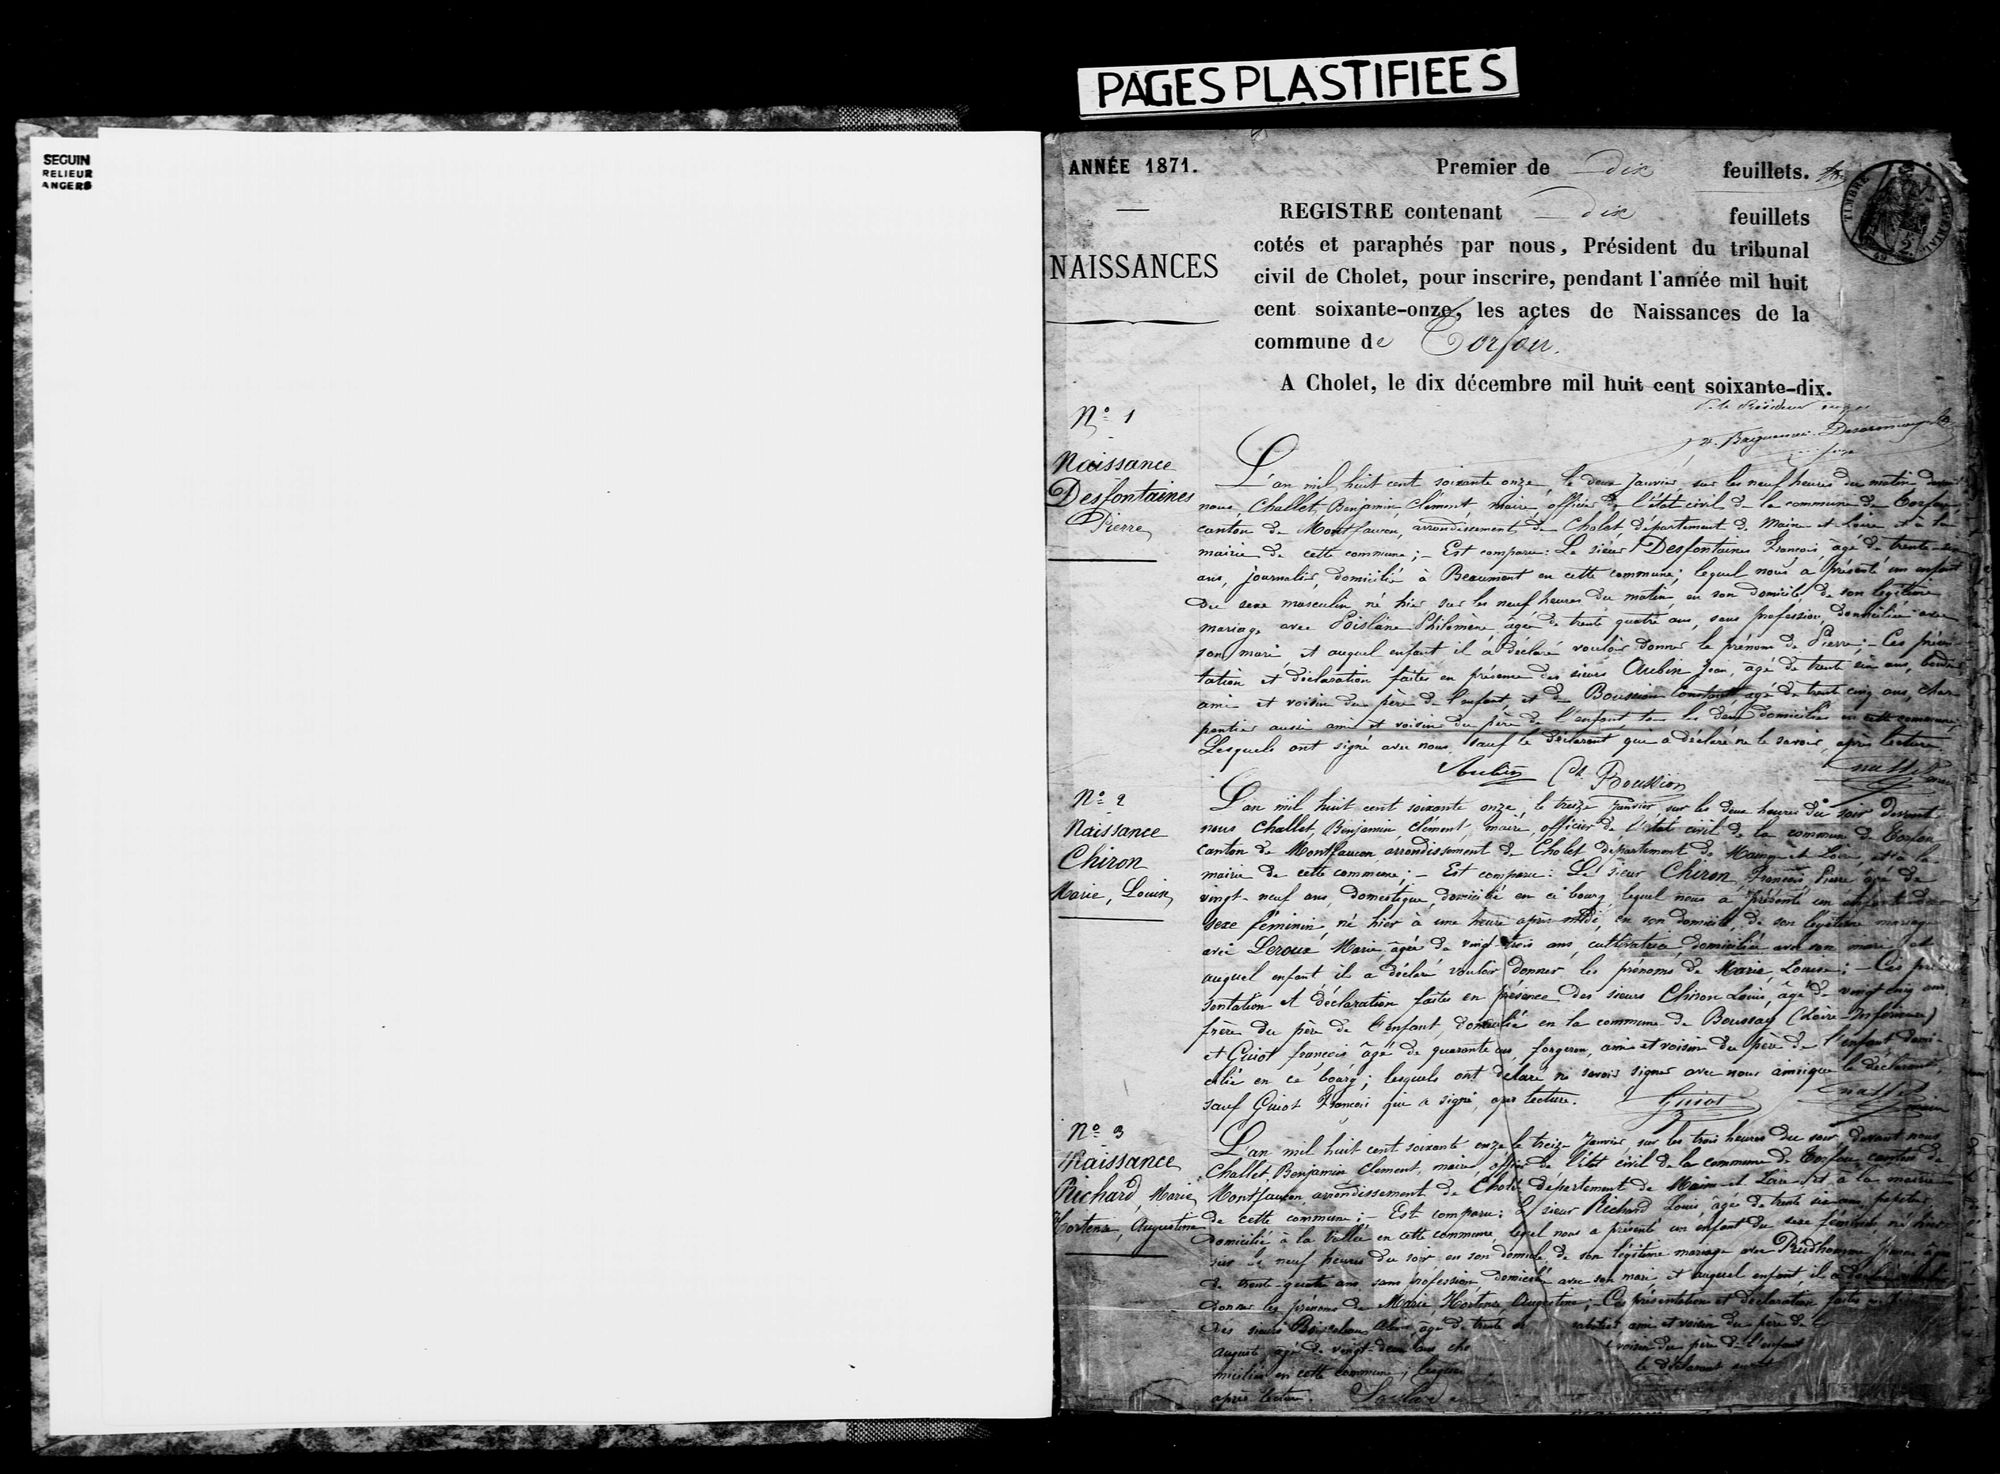 PAGES PLASTIFIEES
SEGUIN
RELIEUR
ANGERS
ANNÉE 1871.
Premier de dix feuillets.
NAISSANCES
REGISTRE contenant dix feuillets
cotés et paraphés par nous, Président du tribunal
civil de Cholet, pour inscrire, pendant l'année mil huit
cent soixante-onze, les actes de Naissances de la
commune de Torfou.
A Cholet, le dix décembre mil huit cent soixante-dix.
TIMBRE IMPERIAL
N° 1
Naissance
Desfontaines
Pierre
L'an mil huit cent soixante onze, le deux Janvier, sur les neuf heures du matin devant
nous, Challet, Benjamin, Clément, maire, officier de l'état civil de la commune de Torfou
canton de Montfaucon, arrondissement de Cholet département de Maine et Loire et à la
mairie de cette commune; - Est comparu: Le sieur Desfontaines François, âgé de trente
ans, journalier, domicilié à Beaumont en cette commune; lequel nous a présenté un enfant
du sexe masculin né hier sur les neuf heures du matin, en son domicile, de son légitime
mariage avec Poislâne Philomène âgée de trente quatre ans, sans profession, domiciliée avec
son mari, et auquel enfant il a déclaré vouloir donner le prénom de Pierre; - Ces présen-
tation et déclaration faites en présence des sieurs Aubin Jean, âgé de trente ans,
ami et voisin du père de l'enfant, et de Boussion Constant, âgé de trente cinq ans, char-
pentier aussi ami et voisin du père de l'enfant, tous les deux domiciliés en cette commune,
Lesquels ont signé avec nous, sauf le déclarant qui a déclaré ne le savoir, après lecture
Aubin Ct. Boussion
N° 2
Naissance
Chiron
Marie, Louise
L'an mil huit cent soixante onze, le treize Janvier sur les deux heures du soir devant
nous Challet, Benjamin, Clément, maire, officier de l'état civil de la commune de Torfou
canton de Montfaucon arrondissement de Cholet département de Maine et Loire, et à la
mairie de cette commune; - Est comparu: Le sieur Chiron, François, Pierre âgé de
vingt-neuf ans, domestique, domicilié en ce bourg, lequel nous a présenté un enfant du
sexe féminin, né hier à une heure après midi, en son domicile, de son légitime mariage
avec Leroux Marie, âgée de vingt-trois ans, cultivatrice, domiciliée avec son mari et
auquel enfant il a déclaré vouloir donner les prénoms de Marie, Louise; - Ces pré-
sentation et déclaration faites en présence des sieurs Chiron Louis, âgé de vingt cinq ans,
frère du père de l'enfant, domicilié en la commune de Boussay (Loire-Inférieure)
et Guiot françois âgé de quarante ans, forgeron, ami et voisin du père de l'enfant domi-
cilié en ce bourg; lesquels ont déclaré ne savoir signer avec nous ainsi que le déclarant,
sauf Guiot François qui a signé, après lecture. Guiot
N° 3
Naissance
Richard, Marie
Hortense, Augustine
L'an mil huit cent soixante onze le treize Janvier, sur les trois heures du soir, devant nous
Challet, Benjamin Clément, maire, officier de l'état civil de la commune de Torfou, canton de
Montfaucon arrondissement de Cholet département de Maine et Loire et à la mairie
de cette commune; - Est comparu: Le sieur Richard Louis, âgé de trente six ans, papetier
domicilié à la Vallée en cette commune, lequel nous a présenté un enfant du sexe féminin, né hier
sur les neuf heures du soir, en son domicile, de son légitime mariage avec Prudhomme
de trente-quatre ans, sans profession, domiciliée avec son mari, et auquel enfant, il a déclaré
donner les prénoms de Marie, Hortense, Augustine; - Ces présentation et déclaration faites
des sieurs âgé de trente ami et voisin du père de
Auguste âgé de vingt-deux ans voisin du père de l'enfant
micilié en cette commune; le déclarant
après lecture.